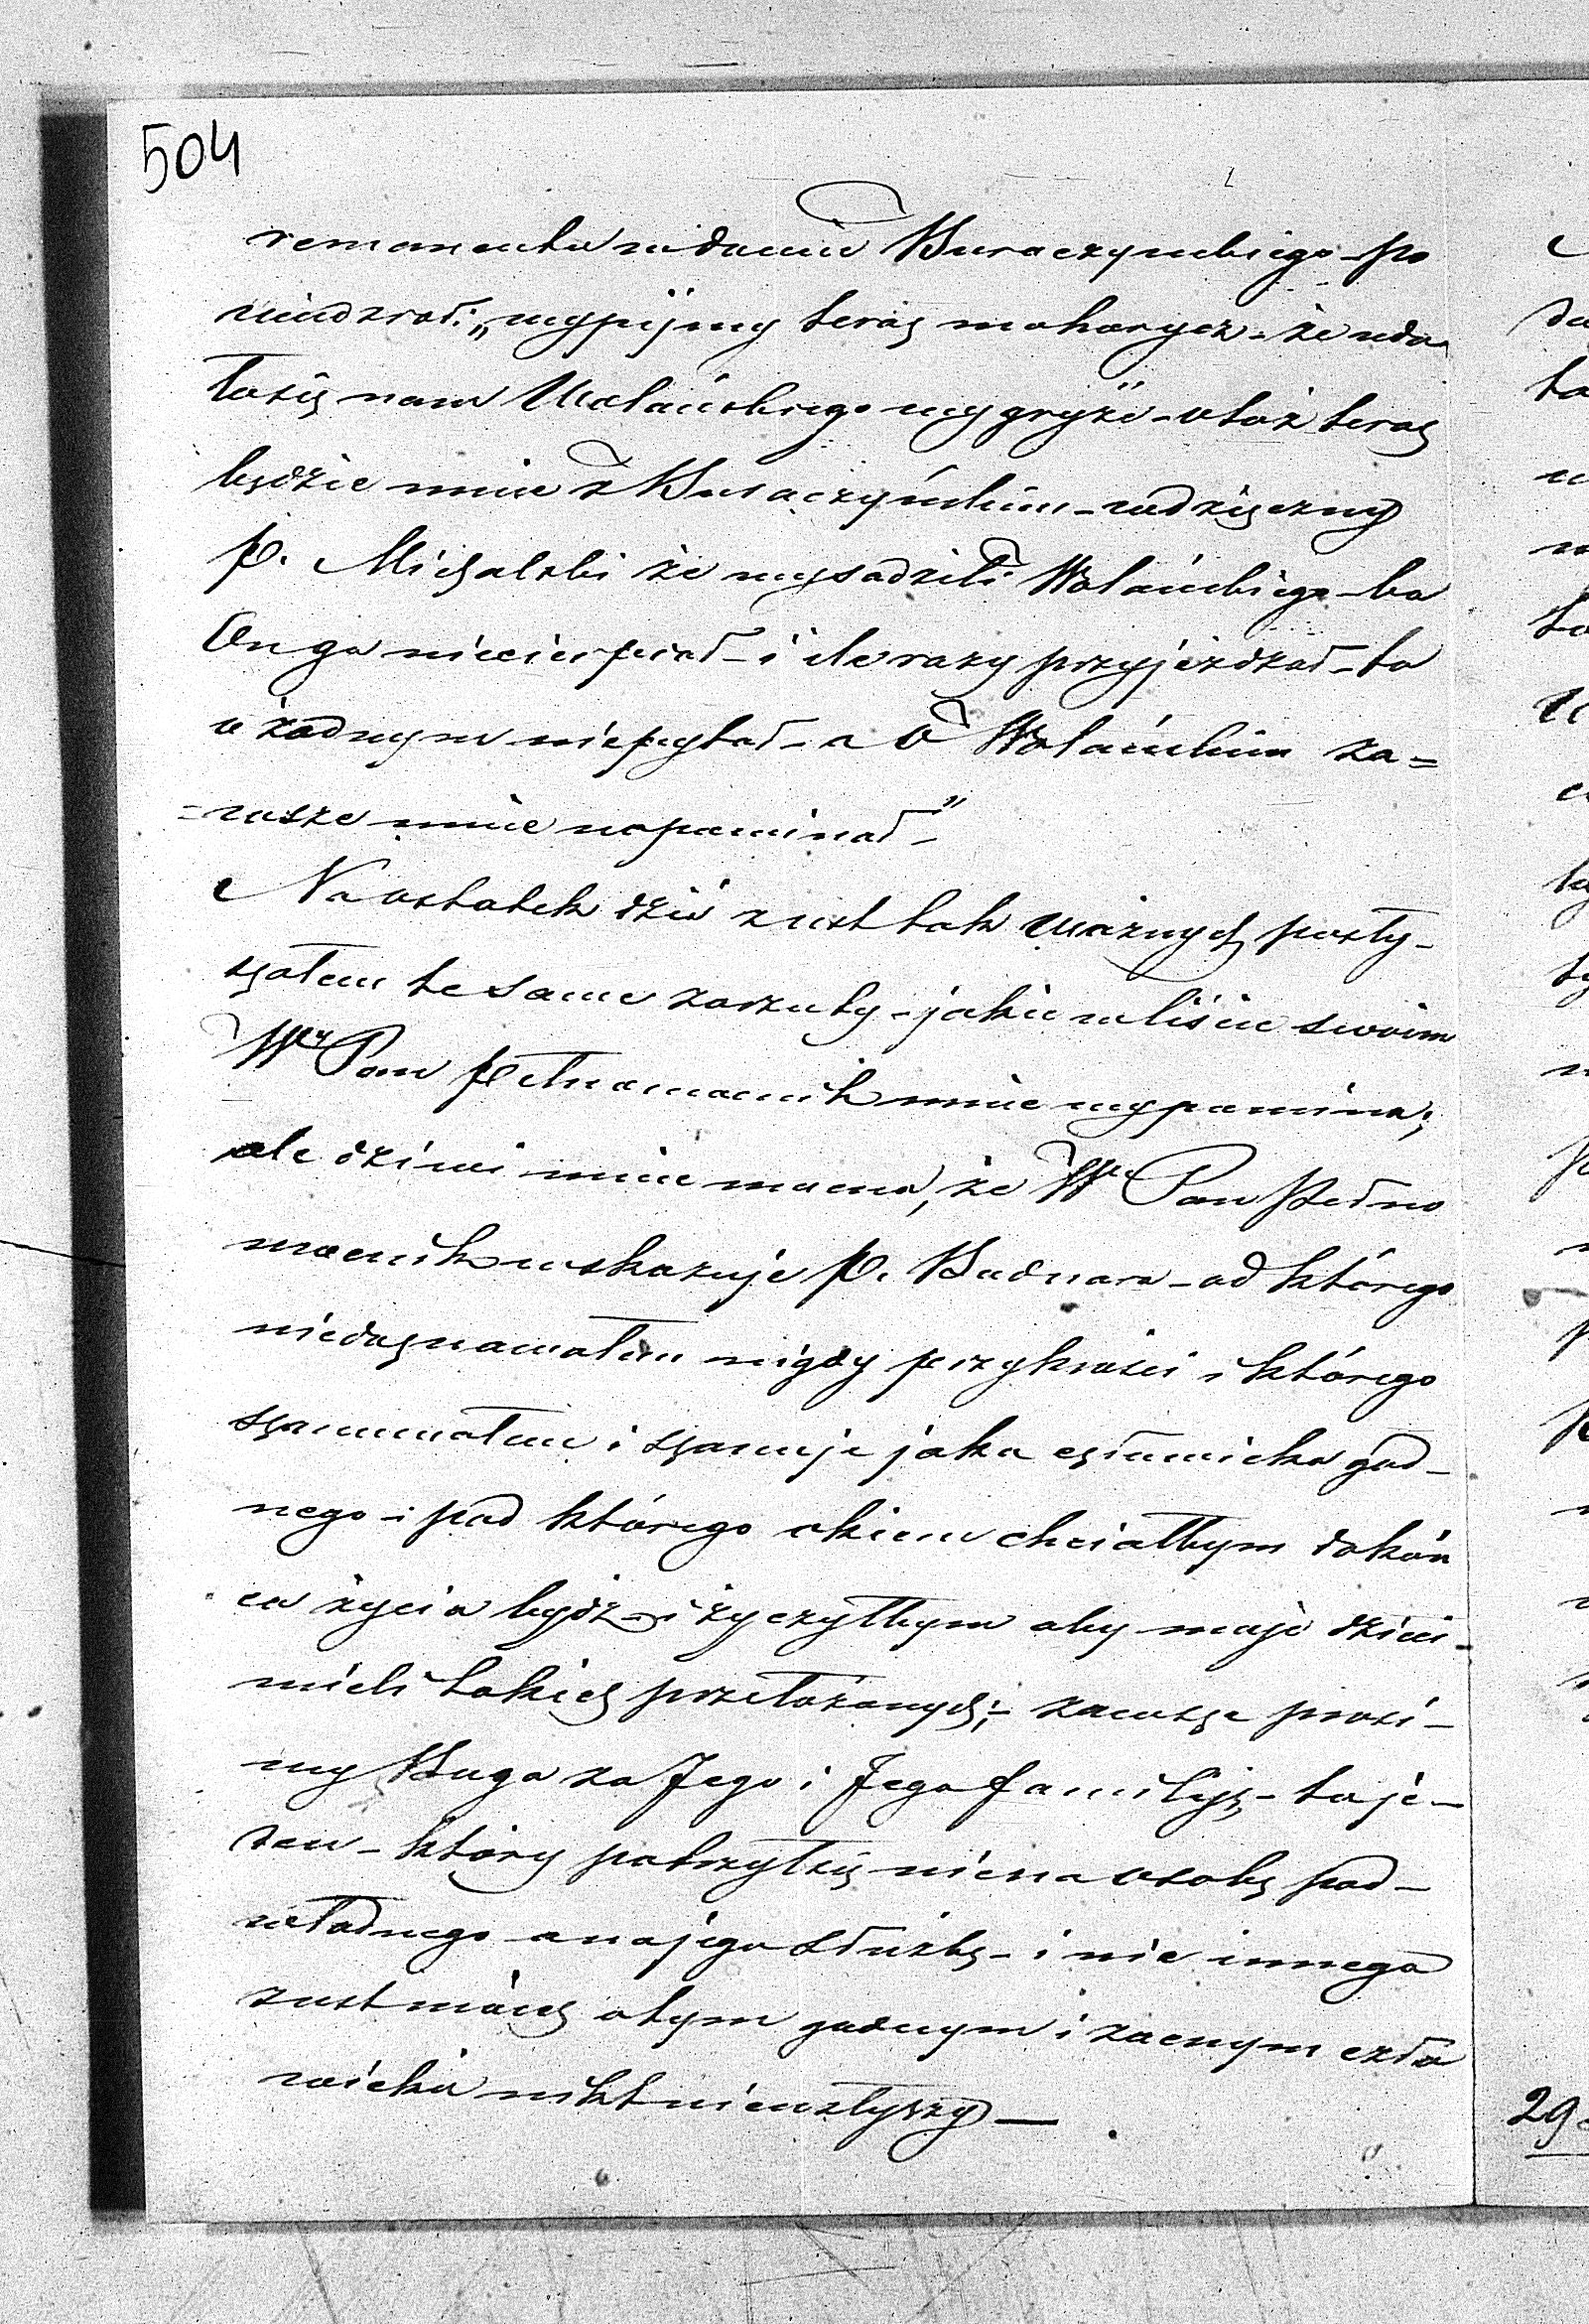 504
remanentu w domu Buraczyńskiego po
wiedział: „wypijmy teraz moharycz - że uda
łosię nam Wolańskiego wygryźć - otoż teraz
będzie mnie z Buraczyńskim - wdzięczny
p. Michalski że wysadzili Wolańskiego - bo
On go niecierpiał - i ile razy przyjeżdżał - to
o żadnym niepytał - a o Wolańskim za=
=wsze mnie napominał" -
Naostatek dziś z ust tak ważnych posły-
szałem te same zarzuty - jakie w liście swoim
Wny Pan Pełnomocnik mnie wypomina;
ale dziwi mnie mocno, że Wny Pan Pełno
mocnik wskazuje p. Budnara - od którego
niedoznawałem nigdy przykrości i którego
szanowałem i szanuje jako człowieka god-
nego - i pod którego okiem chciałbym dokoń
ca życia bydź - i życzyłbym aby moje dzieci -
mieli takich przełożonych; - zawsze prosi-
my Boga za Jego i Jego familiję - to je-
den - który patrzyłsię niena osobę pod-
władnego - a na jego służbę - i nic innego
z ust mówę otym godnym i zacnym czło
wieku nikt nieusłyszy —
29